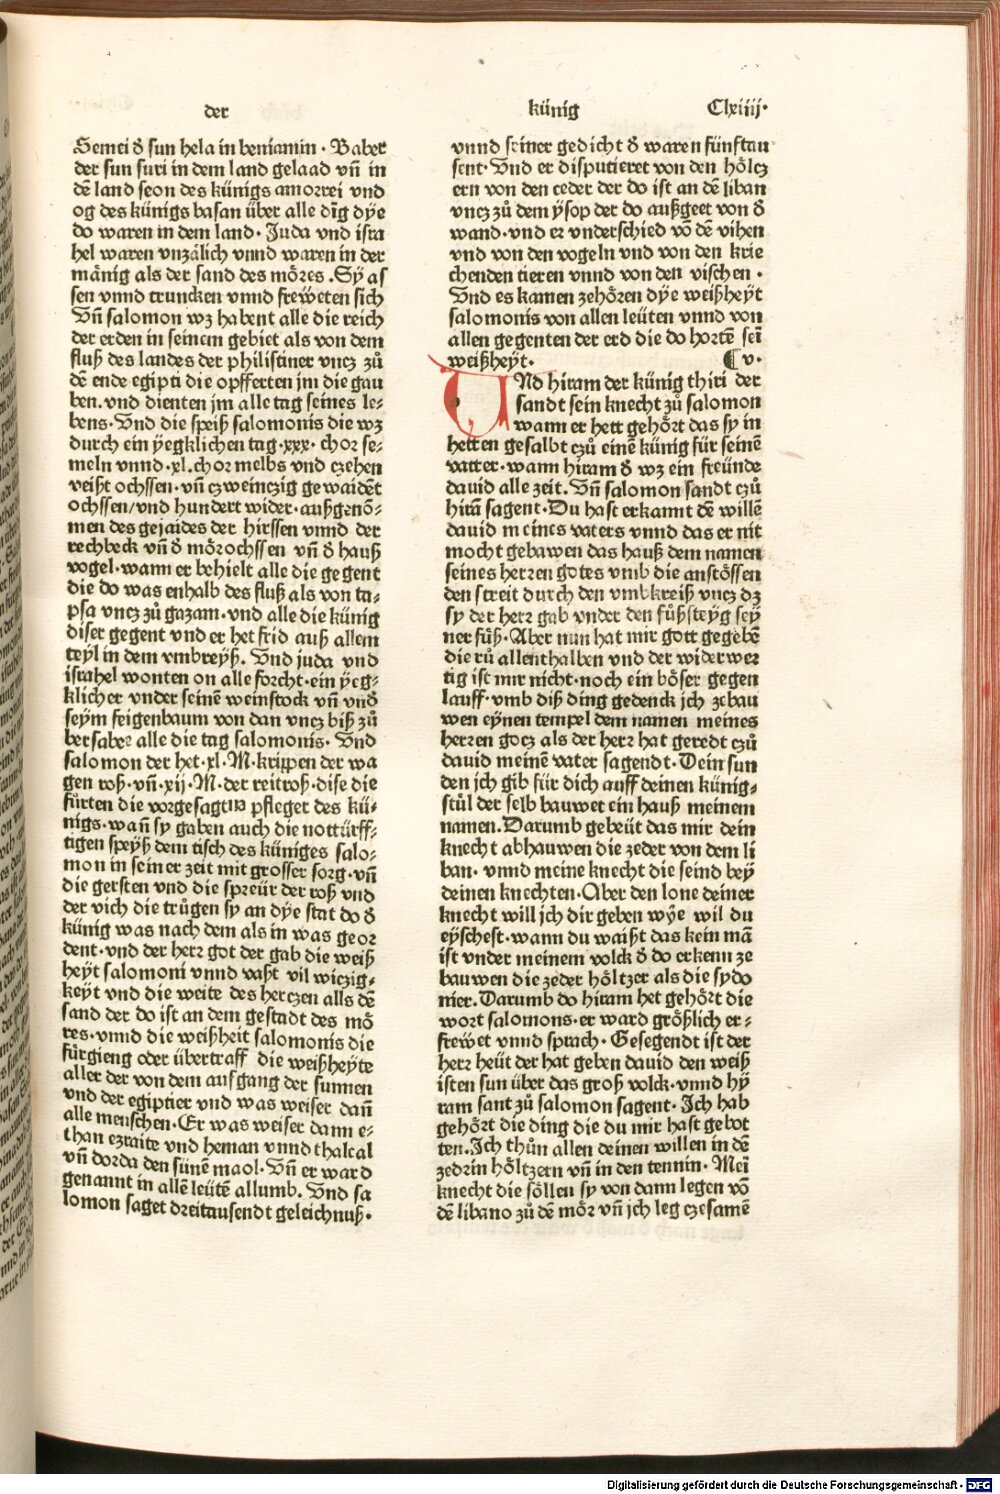 der künig Clxiiij·
Semei d̕ sun hela in beniamin · Baber
der sun suri in dem land gelaad vñ in
dē land seon des künigs amorrei vnd
og des künigs basan über alle dīg dÿe
do waren in dem land· Juda vnd isra
hel waren vnzälich vnnd waren in der
mänig als der sand des möres .Sÿ as
sen vnnd truncken vnnd freẅeten sich
Vñ salomon wz habent alle die reich
der erden in seinem gebiet als von dem
fluß des landes der philistiner vncz zů
dē ende egipti die opfferten jm die gau
ben. vnd dienten jm alle tag seines le⸗
bens· Vnd die speiß salomonis die wz
durch ein ÿegklichen tag ·xxx· chor se⸗
meln vnnd ·xl. chor melbs vnd czehen
veißt ochssen· vñ czweinczig gewaidēt
ochssen/vnd hundert wider· außgenō⸗
men des gejaides der hirssen vnnd der
rechbeck vñ d̕ mörochssen vñ d̕ hauß
vogel· wann er behielt alle die gegent
die do was enhalb des fluß als von ta⸗
psa vncz zů gazam· vnd alle die künig
diser gegent vnd er het frid auß allem
teyl in dem vmbreyß. Vnd juda vnd
israhel wonten on alle forcht· ein ÿeg⸗
klicher vnder seinē weinstock vñ vnd̕
seym feigenbaum von dan vncz biß zů
bersabee alle die tag salomonis· Vnd
salomon der het ·xl·M· krippen der wa
gen roß· vñ ·xij·M· der reitroß· dise die
fürten die vorgesagtn pfleger des kü⸗
nigs· wañ sy gaben auch die nottürff⸗
tigen speyß dem tisch des küniges salo⸗
mon in seiner zeit mit grosser sorg· vñ
die gersten vnd die spreür der roß vnd
der vich die trůgen sy an dÿe stat do d̕
künig was nach dem als in was geor
dent· vnd der herr got der gab die weiß
heyt salomoni vnnd vaßt vil wiczig⸗
keyt vnd die weite des herczen alls dē
sand der do ist an dem gestadt des mö
res· vnnd die weißheit salomonis die
fürgieng oder übertraff die weißheyte
aller der von dem aufgang der sunnen
vnd der egiptier vnd was weiser dañ
alle menschen· Er was weiser dann e⸗
than ezraite vnd heman vnnd thalcal
vñ dorda den sünē maol· Vñ er ward
genannt in allē leütē allumb. Vnd sa
lomon saget dreitausendt geleichnuß·
vnnd seiner gedicht d̕ waren fünftau
sent· Vnd er disputieret von den höltz
ern von den ceder der do ist an dē liban
vncz zů dem ÿsop der do außgeet von d̕
wand· vnd er vnderschied vō dē vihen
vnd von den vogeln vnd von den krie
chenden tieren vnnd von den vischen ·
Vnd es kamen zehören dÿe weißheÿt
salomonis von allen leüten vnnd von
allen gegenten der erd die do hortē sei
weißheÿt· C v·
VNd hiram der künig thiri der
sandt sein knecht zů salomon
wann er hett gehört das sy in
hetten gesalbt czů einē künig für seinē
vatter· wann hiram d̕ wz ein freünde
dauid alle zeit. Vñ salomon sandt czů
hirā sagent· Du hast erkannt dē willē
dauid meines vaters vnnd das er nit
mocht gebawen das hauß dem namen
seines herren gotes vmb die anstössen
den streit durch den vmbkreiß vncz dz
sy der herr gab vnder den fůßsteyg sey
ner füß· Aber nun hat mir gott gegebē
die rů allenthalben vnd der widerwer
tig ist mir nicht· noch ein böser gegen
lauff· vmb diß ding gedenck jch zebau
wen eÿnen tempel dem namen meines
herren gocz als der herr hat geredt czů
dauid meinē vater sagendt· Dein sun
den jch gib für dich auff deinen künig⸗
stůl der selb bauwet ein hauß meinem
namen. Darumb gebeüt das mir dein
knecht abhauwen die zeder von dem li
ban· vnnd meine knecht die seind beÿ
deinen knechten· Aber den lone deiner
knecht will jch dir geben wÿe wil du
eÿschest· wann du waißt das kein mā
ist vnder meinem volck d̕ do erkenn ze
bauwen die zeder höltzer als die sydo
nier. Darumb do hiram het gehört die
wort salomons· er ward größlich er⸗
freẅet vnnd sprach· Gesegendt ist der
herr heüt der hat geben dauid den weiß
isten sun über das groß volck· vnnd hÿ
ram sant zů salomon sagent· Ich hab
gehört die ding die du mir hast gebot
ten. Ich thůn allen deinen willen in dē
zedrin höltzern vñ in den tennin· Mei
knecht die söllen sy von dann legen vō
dē libano zů dē mör vñ jch leg czesamē
Digitalisierung gefördert durch die Deutsche Forschungsgemeinschaft · DFG